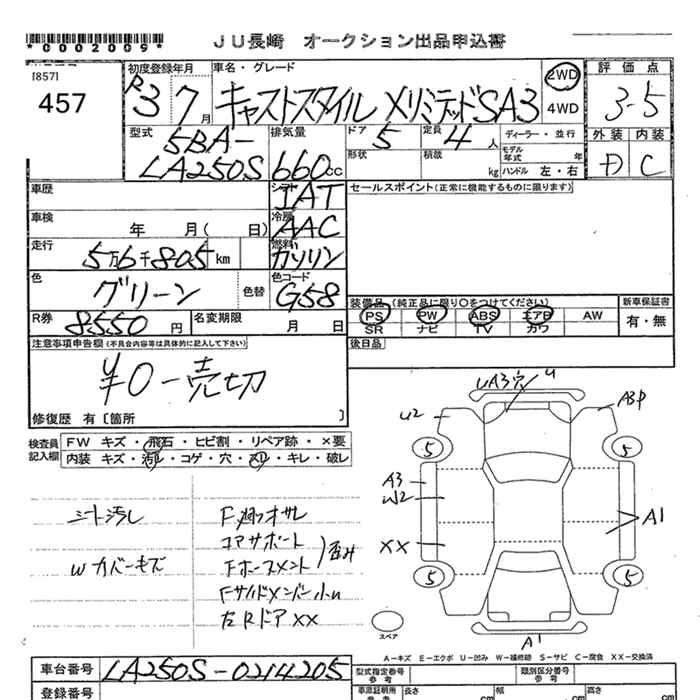 *0002009*
JU長崎 オークション出品申込書
[857]
457
初度登録年月
R3 7月
車名・グレード
キャストスタイル メリミテッドSA3
2WD
4WD
評価点
3-5
型式
5BA-
LA250S
排気量
660cc
ドア
5
定員
4人
形状
積載
kg
ディーラー・並行
モデル年式
年
ハンドル 左・右
外装
内装
D
C
車歴
シフト
IAT
セールスポイント(正常に機能するものに限ります)
車検
年 月(日)
冷房
AAC
走行
5万6千805km
燃料
ガソリン
色
グリーン
色替
色コード
G58
R券
8550円
名変期限
月 日
装備品(純正品に限り○をつけてください)
新車保証書
PS PW ABS エアB AW
SR ナビ TV カワ
有・無
注意事項申告欄(不具合内容等は具体的に記入して下さい)
¥0-売切
後日品
修復歴 有〔箇所 〕
検査員記入欄
FW キズ・飛石・ヒビ割・リペア跡・×要
内装 キズ・汚れ・コゲ・穴・スリ・キレ・破レ
シート汚し
Wカバーキズ
コアサポート
Fサイドメンバー小
左Rドア XX
歪み
UA3穴
U
A3P
U2
5
5
A3
W2
XX
A1
5
5
スペア
A1
A-キズ E-エクボ U-凹み W-補修跡 S-サビ C-腐食 XX-交換済
車台番号
LA250S-0214205
型式指定番号
参考
類別区分番号
参考
登録番号
車庫証明用
参考
長さ
cm
幅
cm
高さ
cm